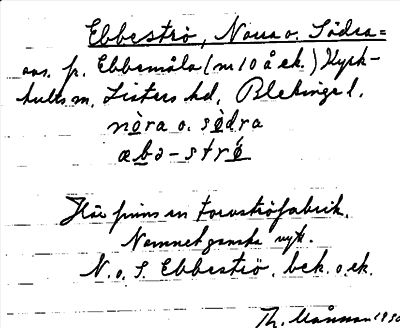 Ebbeströ, Norra o. Södra =
avs. fr. Ebbemåla (m 10 å ek.) Kyrk-
hults sn, Listers hd, Blekinge l.
nòra o. sø̀dra
æbə-strø̄
Här finns en torvströfabrik.
Namnet ganska nytt.
N. o. S. Ebbeströ, bek. o. ek.
Th. 1930